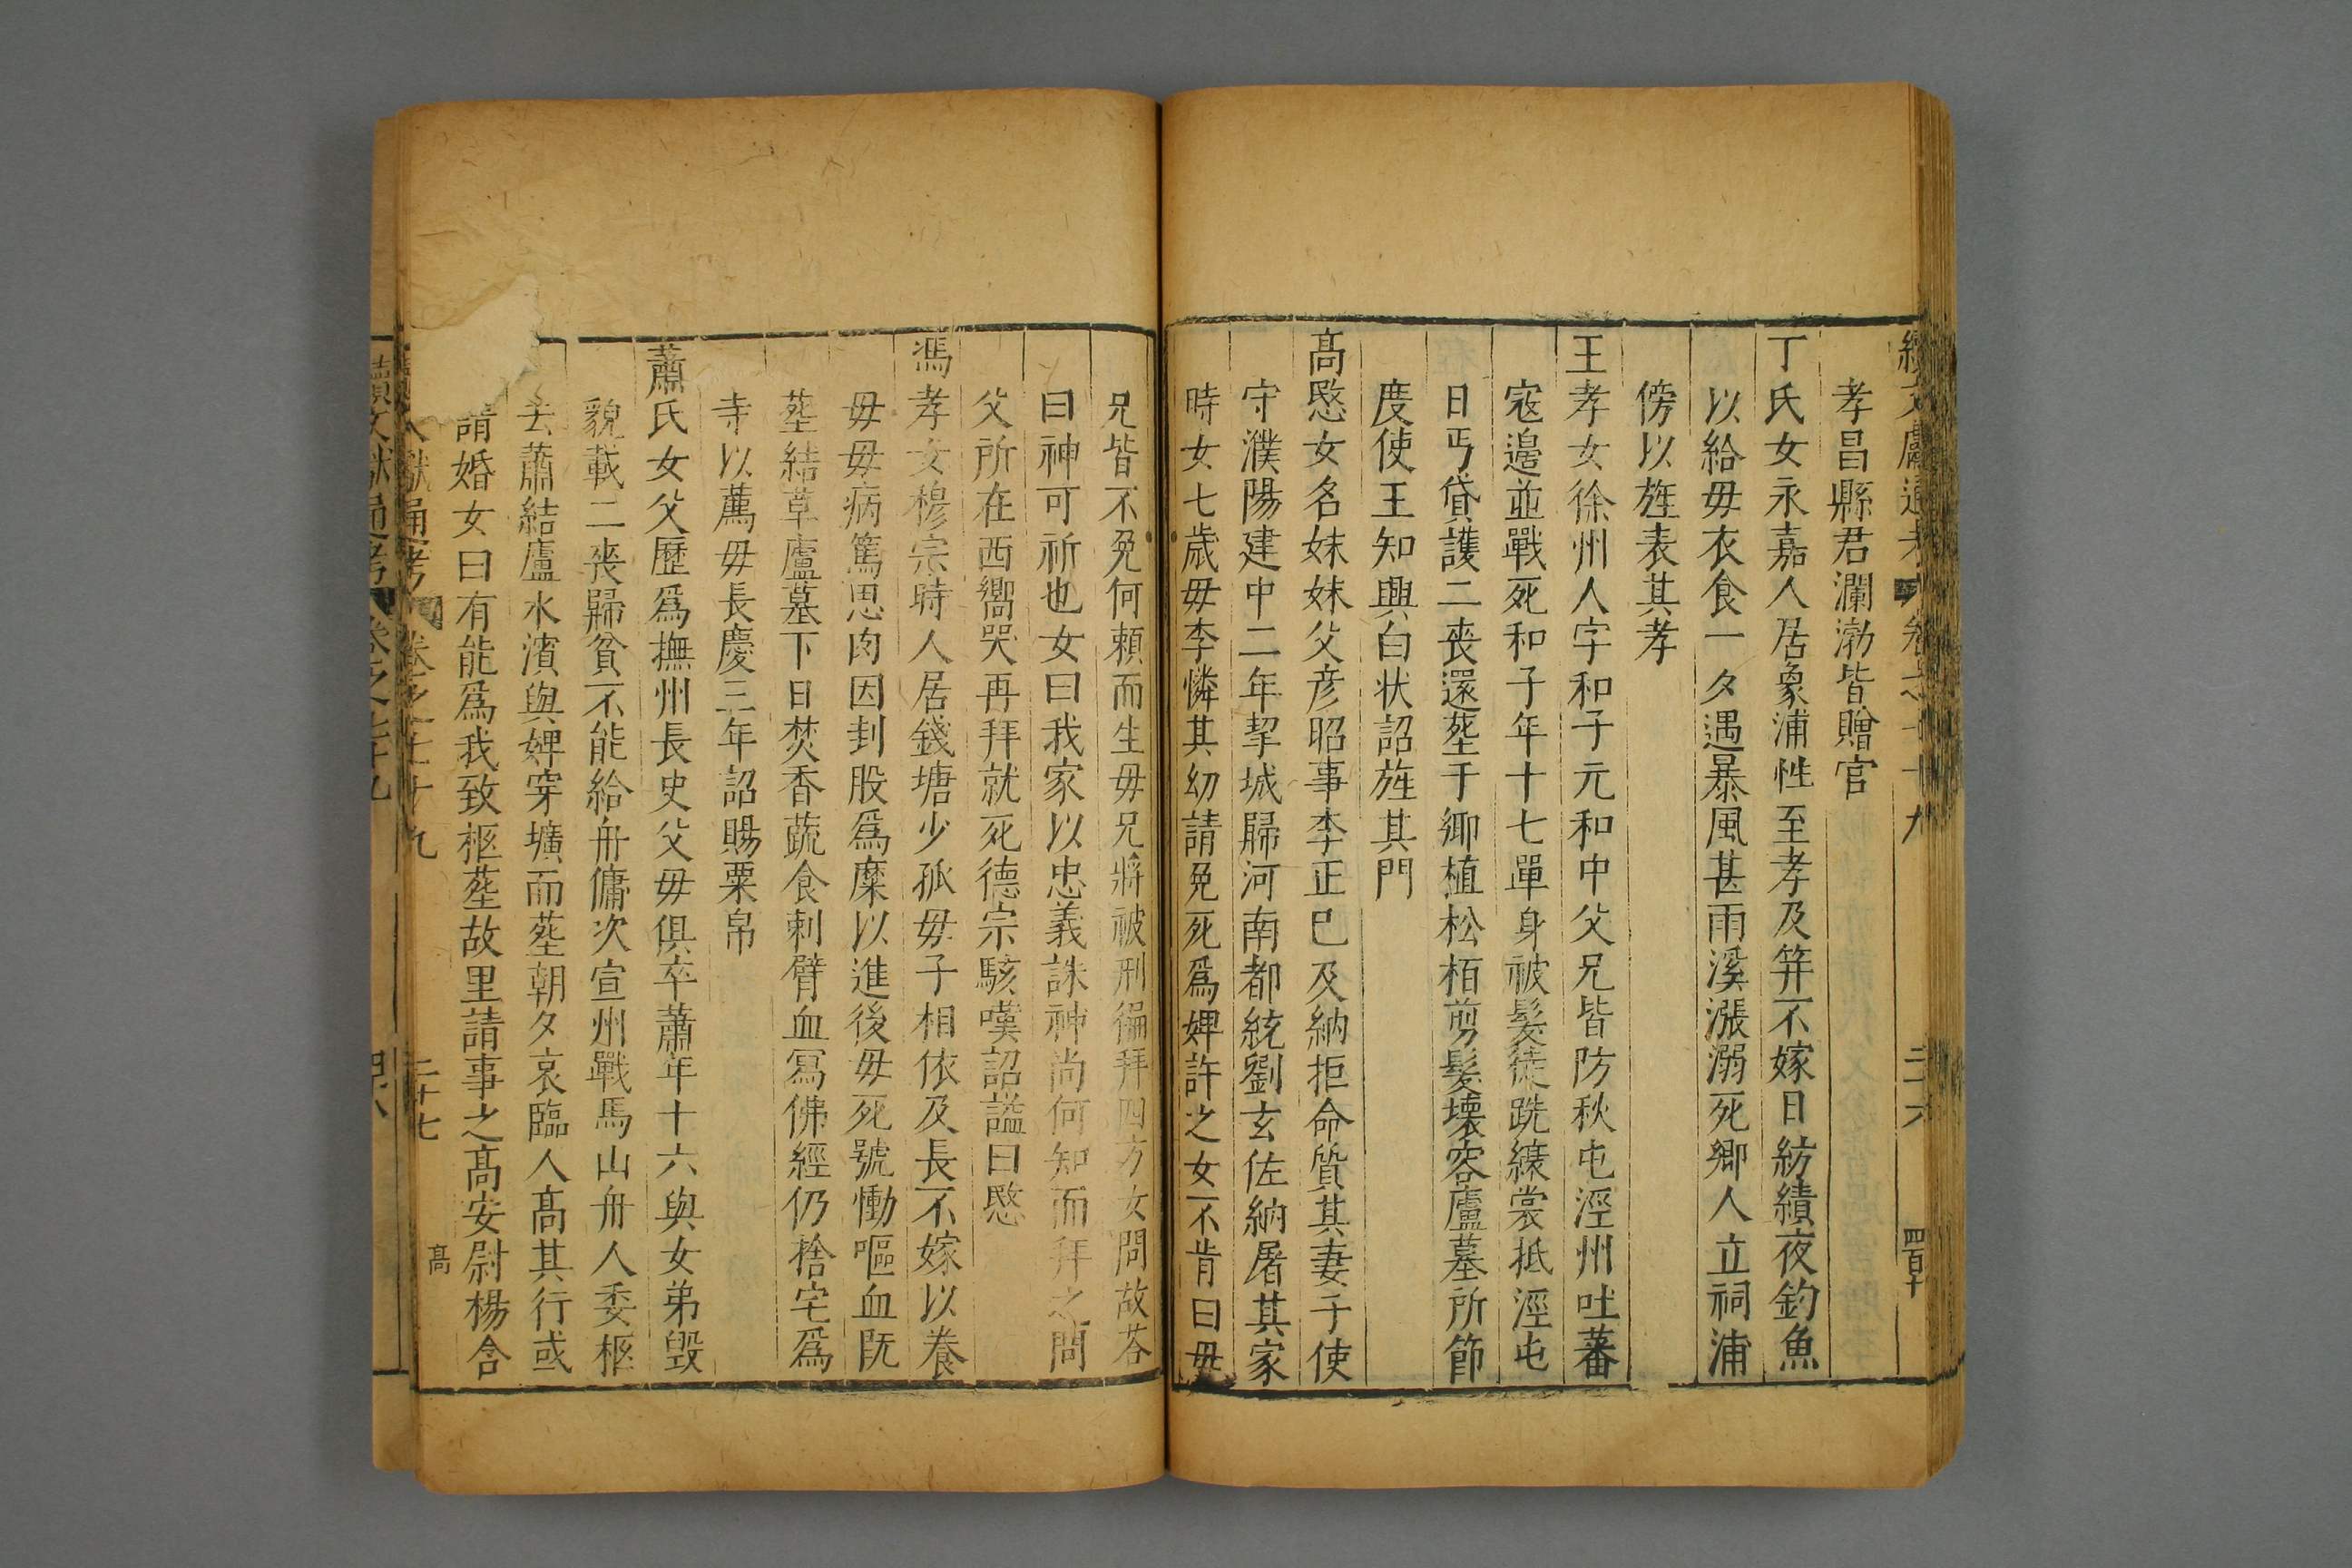 孝昌縣君瀾渤皆贈官
丁氏女永嘉人居象浦性至孝及笄不嫁日紡績夜釣魚
以給毋衣食一夕遇暴風甚雨溪漲溺死鄉人立祠浦
傍以旌表其孝
王孝女徐州人字和子元和中父兄皆防秋屯涇州吐蕃
寇邉並戰死和子年十七單身被髮徒跣縗裳抵涇屯
日丐貸護二䘮還塟于鄉植松栢剪髮壞容廬墓所節
度使王知興白状詔旌其門
髙愍女名妹妹父彦昭事李正巳及納拒命質其妻子使
守濮陽建中二年挈城歸河南都統劉玄佐納屠其家
時女七歲毋李憐其幼請免死爲婢許之女不肯曰毋
兄皆不免何頼而生毋兄將被刑徧拜四方女問故荅
曰神可祈也女曰我家以忠義誅神尚何知而拜之問
父所在西嚮哭再拜就死德宗駭嘆詔謚曰愍
馮孝女穆宗時人居錢塘少孤毋子相依及長不嫁以養
毋毋病篤思肉因刲股爲糜以進後毋死號慟嘔血旣
塟結草廬墓下日焚香蔬食刺臂血寫佛經仍捨宅爲
寺以薦毋長慶三年詔賜粟帛
蕭氏女父歷爲撫州長史父毋俱卒蕭年十六與女弟毀
貌載二䘮歸貧不能給舟傭次宣州戰馬山舟人委柩
去蕭結廬水濱與婢穿壙而塟朝夕哀臨人髙其行或
請婚女曰有能爲我致柩塟故里請事之髙安尉楊含
獻通考 卷之七十九 二十七 髙
續文獻通考 卷之七十九